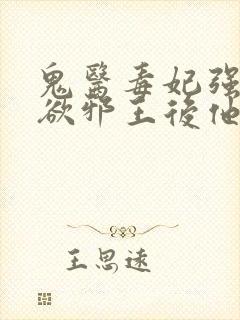 鬼醫毒妃强
欲邪王後他
王思遠